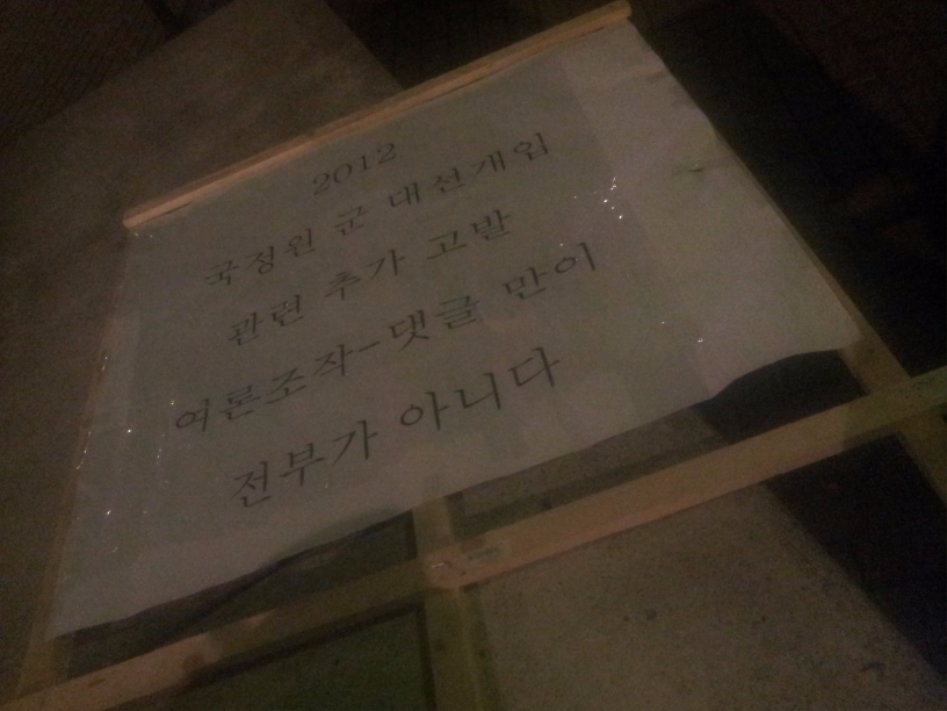 2012
국정원 군 대선개입
관련 추가 고발
여론조작-댓글 만이
전부가 아니다